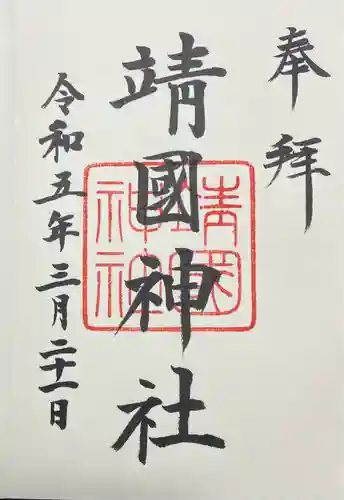 奉拝
靖國神社
靖國
神社
令和五年三月二十一日